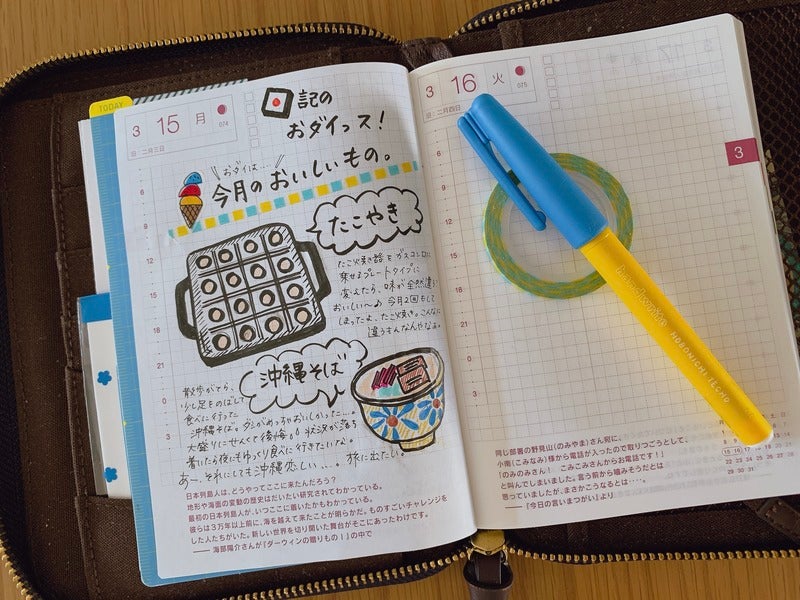 TODAY
3 15 月
074
旧：二月三日
日記の
おダイっス！
おダイは....
今月のおいしいもの。
6
9
12
15
18
21
0
3
たこやき
たこ焼き器をガスコンロに
乗せるプレートタイプに
変えたら、味が全然違う
おいしい〜♪ 今月2回もして
しまったよ、たこ焼き。こんなに
違うもんなんやなぁ。
沖縄そば
散歩がてら、
少し足をのばして
食べに行った
沖縄そば。ダシがめっちゃおいしかった…。
大盛りにせんくて後悔。状況が落ち
着いたら夜にもゆっくり食べに行きたいな。
あー、それにしても沖縄恋しい…。旅に出たい。
日本列島人は、どうやってここに来たんだろう？
地形や海面の変動の歴史はだいたい研究されてわかっている。
最初の日本列島人が、いつここに着いたかもわかっている。
彼らは3万年以上前に、海を越えて来たことが明らかだ。ものすごいチャレンジを
した人たちがいた。新しい世界を切り開いた舞台がそこにあったわけです。
—— 海部陽介さんが『ダーウィンの贈りもの I 』の中で
3 16 火
075
旧：二月四日
6
9
12
15
18
21
0
3
3
hobonichi
HOBONICHI TECHO
同じ部署の野見山（のみやま）さん宛に、
小南（こみなみ）様から電話が入ったので取りつごうとして、
「のみのみさん！　こみこみさんからお電話です！」
と叫んでしまいました。言う前から噛みそうだとは
思っていましたが、まさかこうなるとは・・・・。
—— 『今日の言いまつがい』より